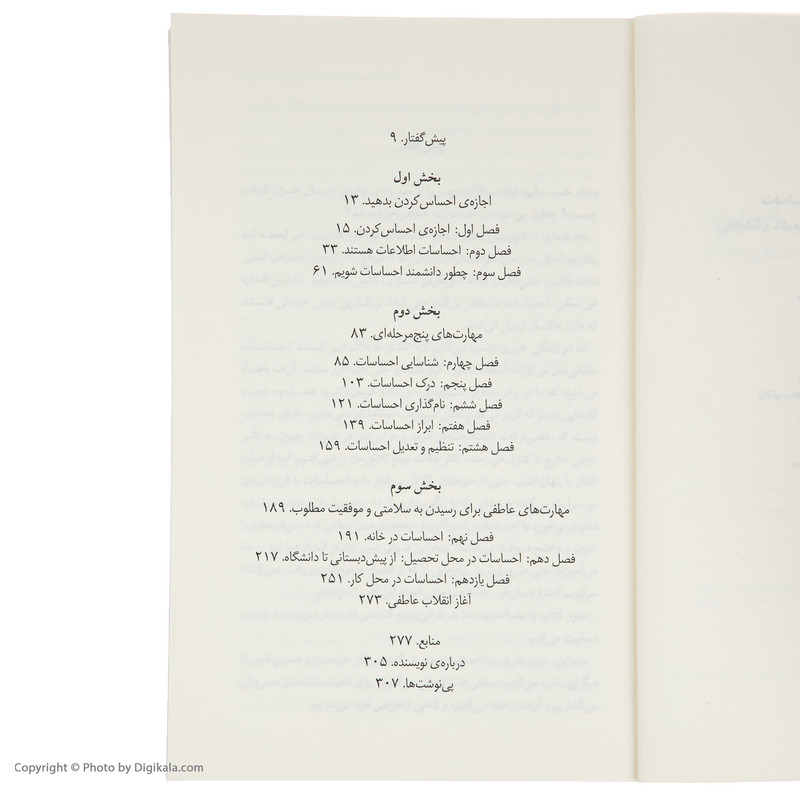 پیش‌گفتار. ۹
بخش اول
اجازه‌ی احساس‌کردن بدهید. ۱۳
فصل اول: اجازه‌ی احساس‌کردن. ۱۵
فصل دوم: احساسات اطلاعات هستند. ۳۳
فصل سوم: چطور دانشمند احساسات شویم. ۶۱
بخش دوم
مهارت‌های پنج‌مرحله‌ای. ۸۳
فصل چهارم: شناسایی احساسات. ۸۵
فصل پنجم: درک احساسات. ۱۰۳
فصل ششم: نام‌گذاری احساسات. ۱۲۱
فصل هفتم: ابراز احساسات. ۱۳۹
فصل هشتم: تنظیم و تعدیل احساسات. ۱۵۹
بخش سوم
مهارت‌های عاطفی برای رسیدن به سلامتی و موفقیت مطلوب. ۱۸۹
فصل نهم: احساسات در خانه. ۱۹۱
فصل دهم: احساسات در محل تحصیل: از پیش‌دبستانی تا دانشگاه. ۲۱۷
فصل یازدهم: احساسات در محل کار. ۲۵۱
آغاز انقلاب عاطفی. ۲۷۳
منابع. ۲۷۷
درباره‌ی نویسنده. ۳۰۵
پی‌نوشت‌ها. ۳۰۷
Copyright © Photo by Digikala.com